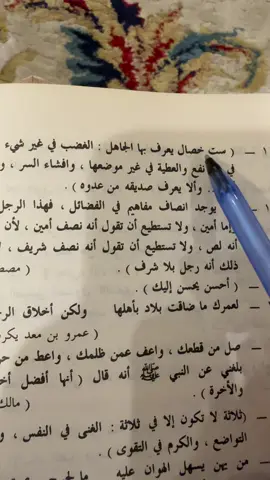 ١ – ( ست خصال يعرف بها الجاهل : الغضب في غير شيء
في نفع والعطية في غير موضعها ، وافشاء السر ، و
وألا يعرف صديقه من عدوه ) .
يوجد انصاف مفاهيم في الفضائل ، فهذا الرجل
وإما أمين ، ولا تستطيع أن تقول أنه نصف أمين ، لأن
أنه لص ، ولا تستطيع أن تقول أنه نصف شريف ،
ذلك أنه رجل بلا شرف ) .
– ( أحسن يحسن إليك ) .
– لعمرك ما ضاقت بلاد بأهلها ولكن أخلاق
( عمرو بن معد
– صل من قطعك ، واعف عمن ظلمك ، واعط من
بلغني عن النبي ﷺ أنه قال ( أنها أفضل
والآخرة ) .
– (ثلاثة لا تكون إلا في ثلاثة : الغنى في النفس ، و
التواضع ، والكرم في التقوى ) .
– من يهن يسهل الهوان عليه